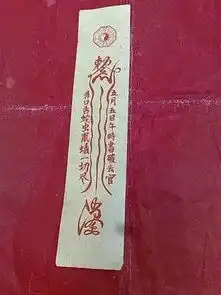 五月五日午時書破去官
非口舌蛇虫鼠蟻一切尽